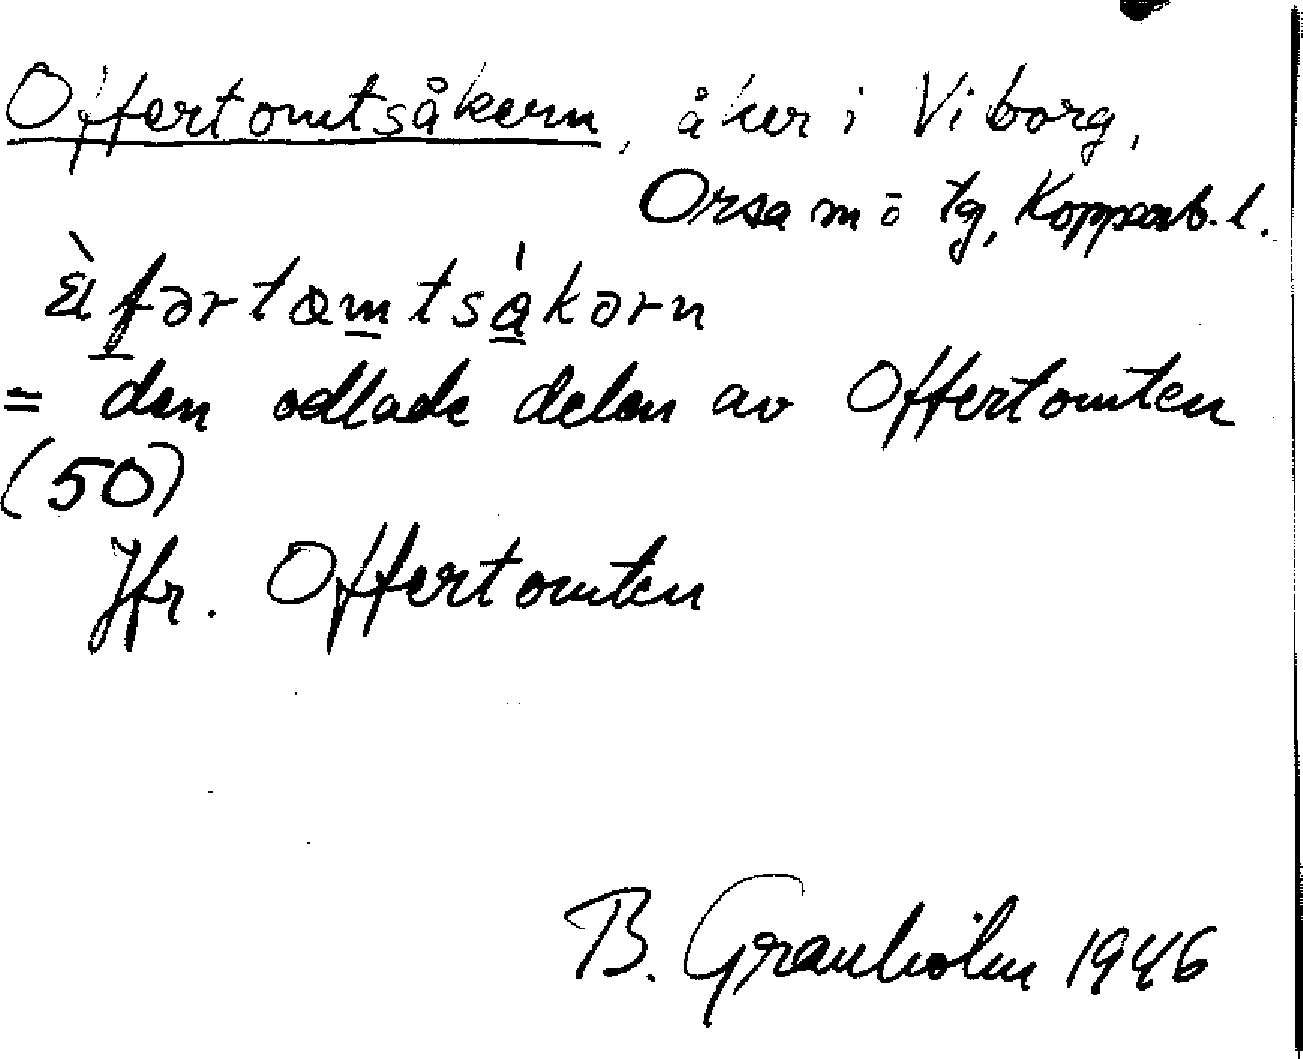 Offertomtsåkern, åker i Viborg,
Orsa m o tg, Kopparb. l.
= den odlade delen av Offertomten
(50)
Jfr. Offertomten
B. Granholm 1946